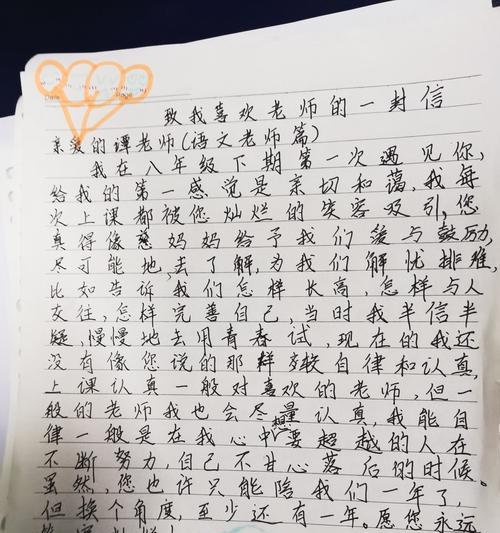 致我喜欢老师的一封信
亲爱的谭老师(语文老师篇)
我在八年级下期第一次遇见你,
给我的第一感觉是亲切和蔼,我每
次上课都被您灿烂的笑容吸引,您
真得像慈妈妈给予我们爱与鼓励,
尽可能地,去了解,为我们解忧排难,
比如告诉我们怎样长高,怎样与人
交往,怎样完善自己,当时我半信半
疑,慢慢地去用青春试,现在的我还
没有像您说的那样较自律和认真,
上课认真一般对喜欢的老师,但一
般的老师我也会尽量认真,我能自
律一般是在我心中想要超越的人在
不断努力,自己不甘心落后的时候。
虽然,您也许只能陪我们一年了,
但换个角度,至少还有一年。愿您永远